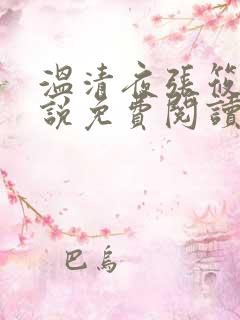 溫清夜張筱
說免費閱讀
巴烏